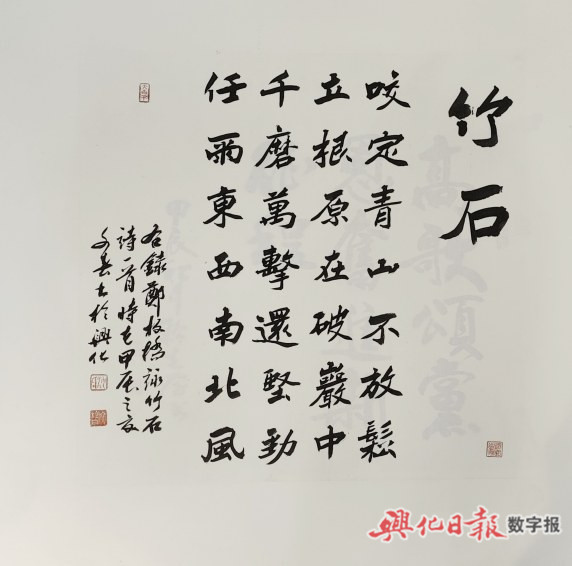 竹石
咬定青山不放鬆
立根原在破巖中
千磨萬擊還堅勁
任雨東西南北風
右録鄭板橋詠竹石
詩一首時在甲辰之夏
於興化
高歌頌黨
興化日報数字报